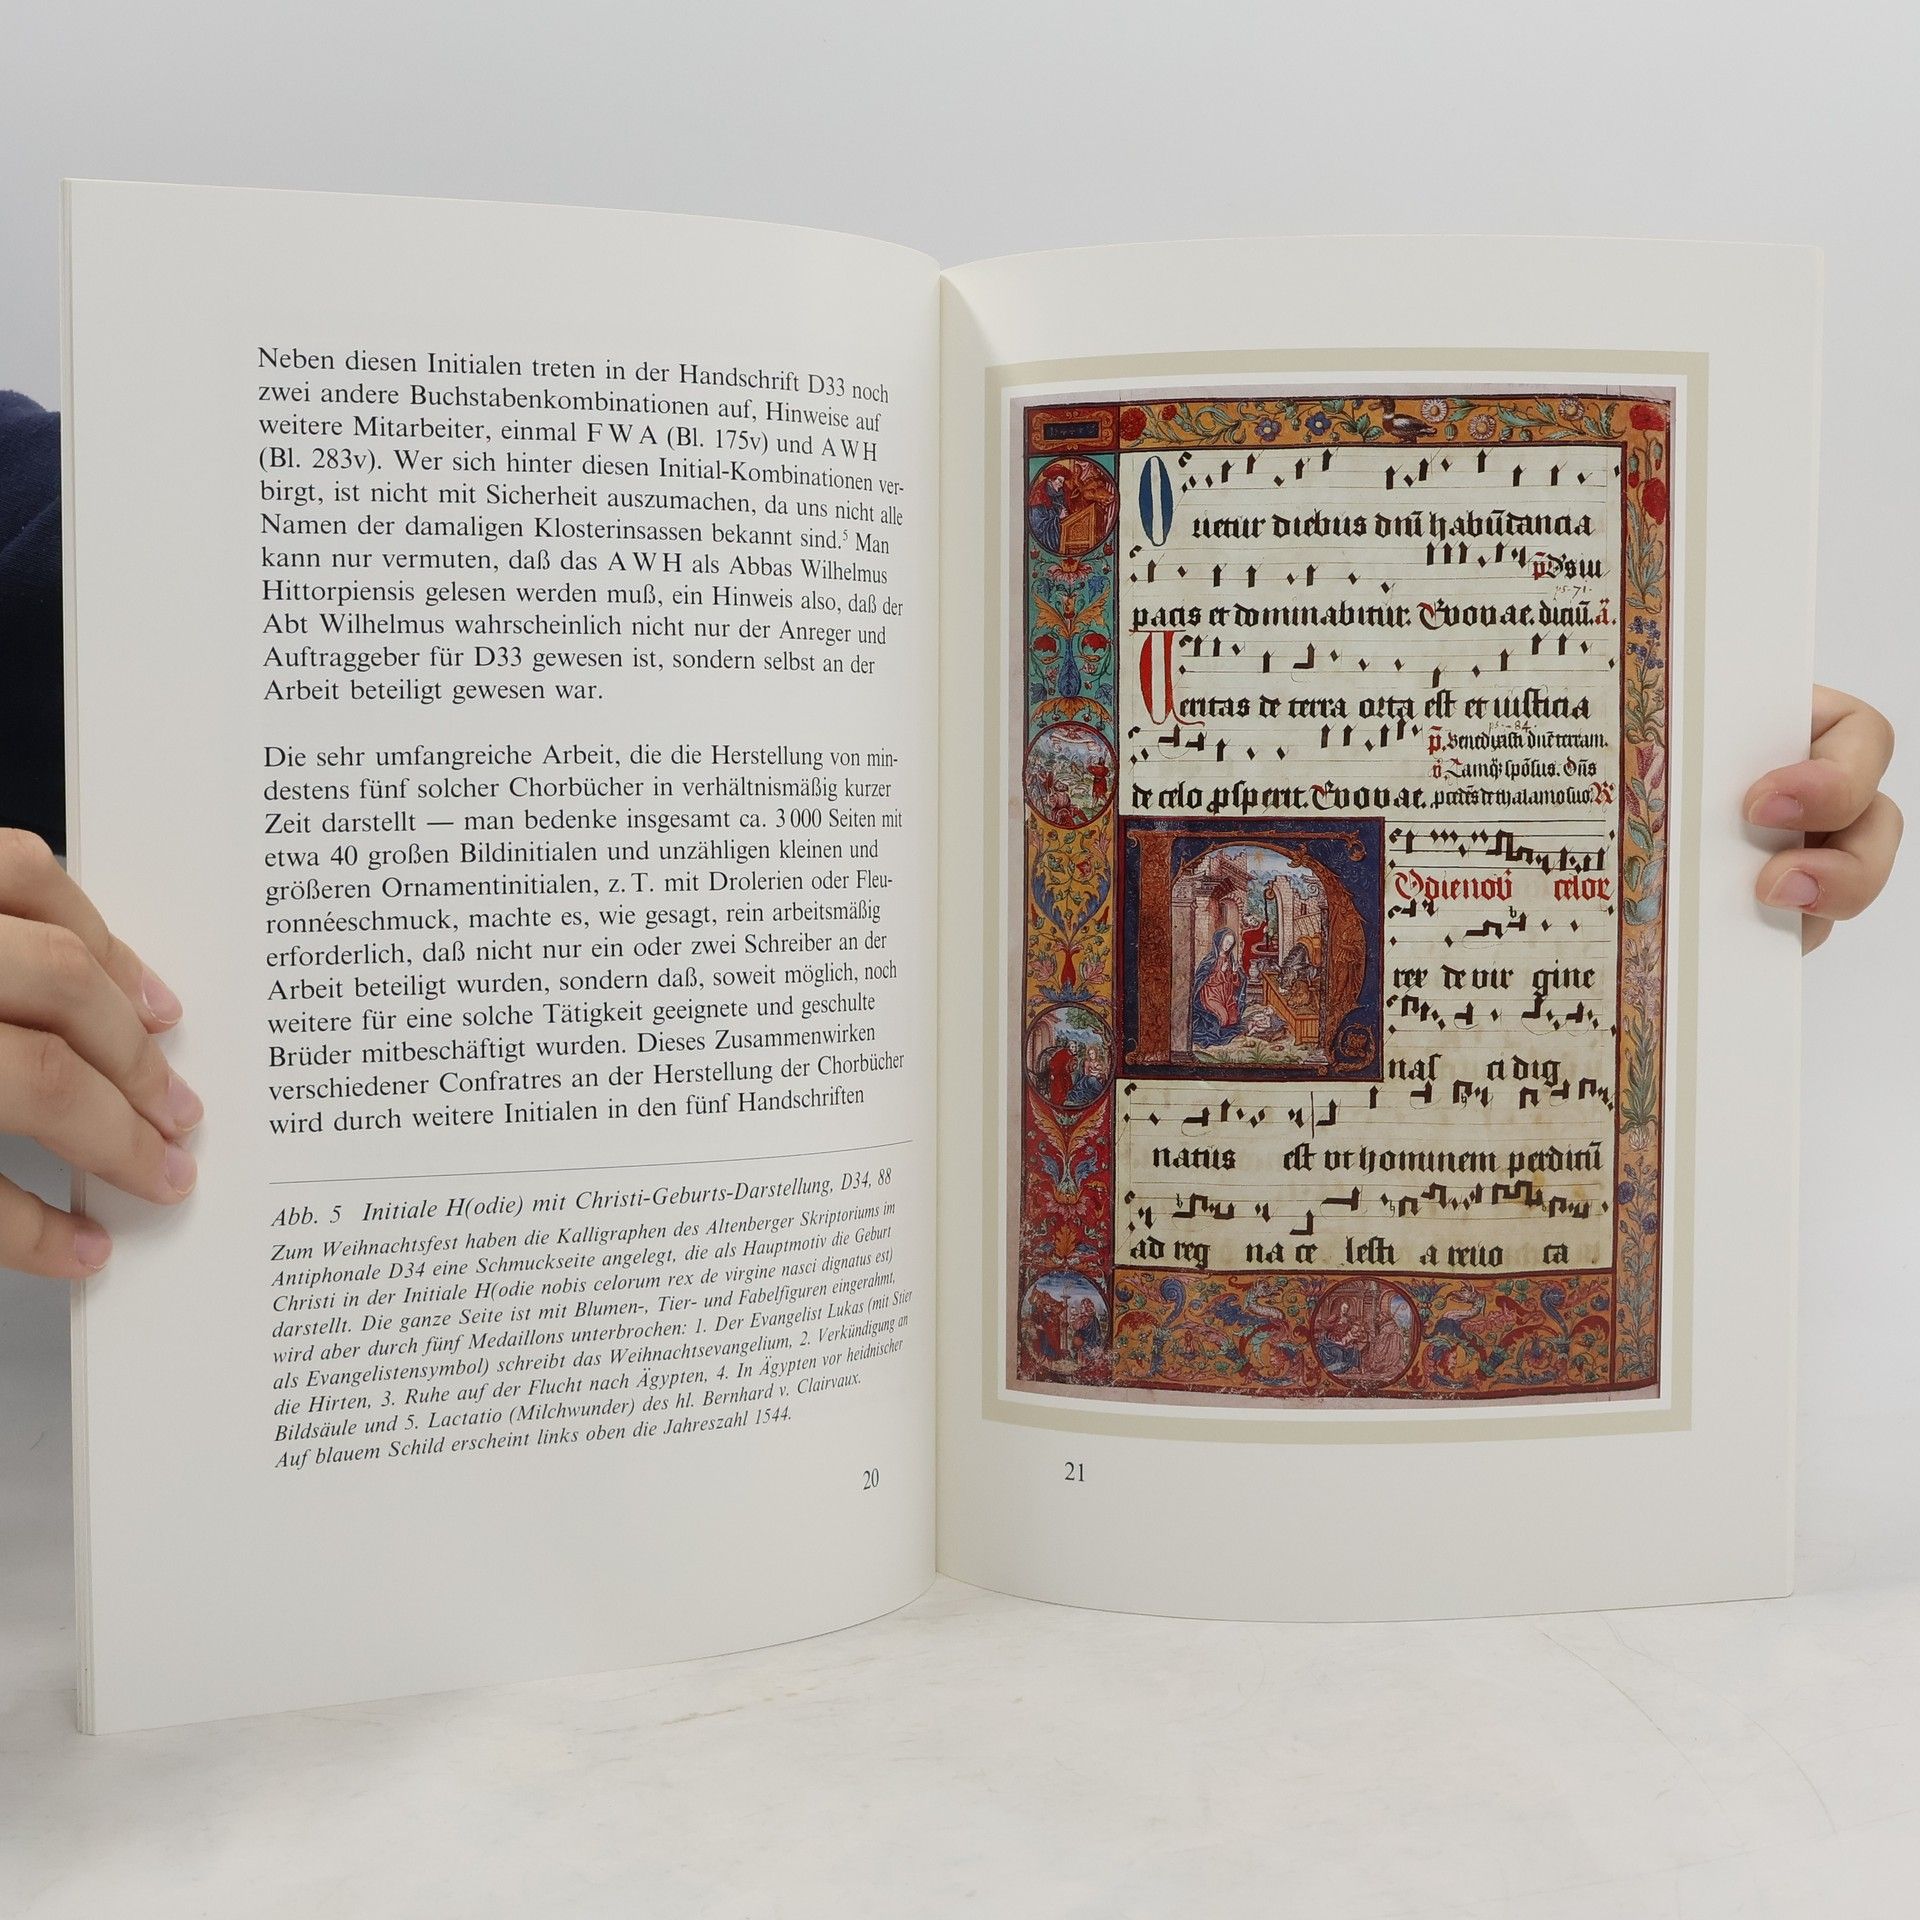 Neben diesen Initialen treten in der Handschrift D33 noch
zwei andere Buchstabenkombinationen auf, Hinweise auf
weitere Mitarbeiter, einmal F W A (Bl. 175v) und A W H
(Bl. 283v). Wer sich hinter diesen Initial-Kombinationen ver-
birgt, ist nicht mit Sicherheit auszumachen, da uns nicht alle
Namen der damaligen Klosterinsassen bekannt sind.⁵ Man
kann nur vermuten, daß das A W H als Abbas Wilhelmus
Hittorpiensis gelesen werden muß, ein Hinweis also, daß der
Abt Wilhelmus wahrscheinlich nicht nur der Anreger und
Auftraggeber für D33 gewesen ist, sondern selbst an der
Arbeit beteiligt gewesen war.
Die sehr umfangreiche Arbeit, die die Herstellung von min-
destens fünf solcher Chorbücher in verhältnismäßig kurzer
Zeit darstellt — man bedenke insgesamt ca. 3 000 Seiten mit
etwa 40 großen Bildinitialen und unzähligen kleinen und
größeren Ornamentinitialen, z. T. mit Drolerien oder Fleu-
ronnéeschmuck, machte es, wie gesagt, rein arbeitsmäßig
erforderlich, daß nicht nur ein oder zwei Schreiber an der
Arbeit beteiligt wurden, sondern daß, soweit möglich, noch
weitere für eine solche Tätigkeit geeignete und geschulte
Brüder mitbeschäftigt wurden. Dieses Zusammenwirken
verschiedener Confratres an der Herstellung der Chorbücher
wird durch weitere Initialen in den fünf Handschriften
Abb. 5 Initiale H(odie) mit Christi-Geburts-Darstellung, D34, 88
Zum Weihnachtsfest haben die Kalligraphen des Altenberger Skriptoriums im
Antiphonale D34 eine Schmuckseite angelegt, die als Hauptmotiv die Geburt
Christi in der Initiale H(odie nobis celorum rex de virgine nasci dignatus est)
darstellt. Die ganze Seite ist mit Blumen-, Tier- und Fabelfiguren eingerahmt,
wird aber durch fünf Medaillons unterbrochen: 1. Der Evangelist Lukas (mit Stier
als Evangelistensymbol) schreibt das Weihnachtsevangelium, 2. Verkündigung an
die Hirten, 3. Ruhe auf der Flucht nach Ägypten, 4. In Ägypten vor heidnischer
Bildsäule und 5. Lactatio (Milchwunder) des hl. Bernhard v. Clairvaux.
Auf blauem Schild erscheint links oben die Jahreszahl 1544.
20
O
rietur diebus dnī habūdancia
pacis et dominabitur. Evovae.
Veritas de terra orta est et iusticia
de celo
Evovae.
H
rex de vir gine
nas ci dig
natus est vt hominem perditū
ad reg na ce lesti a revo ca
21